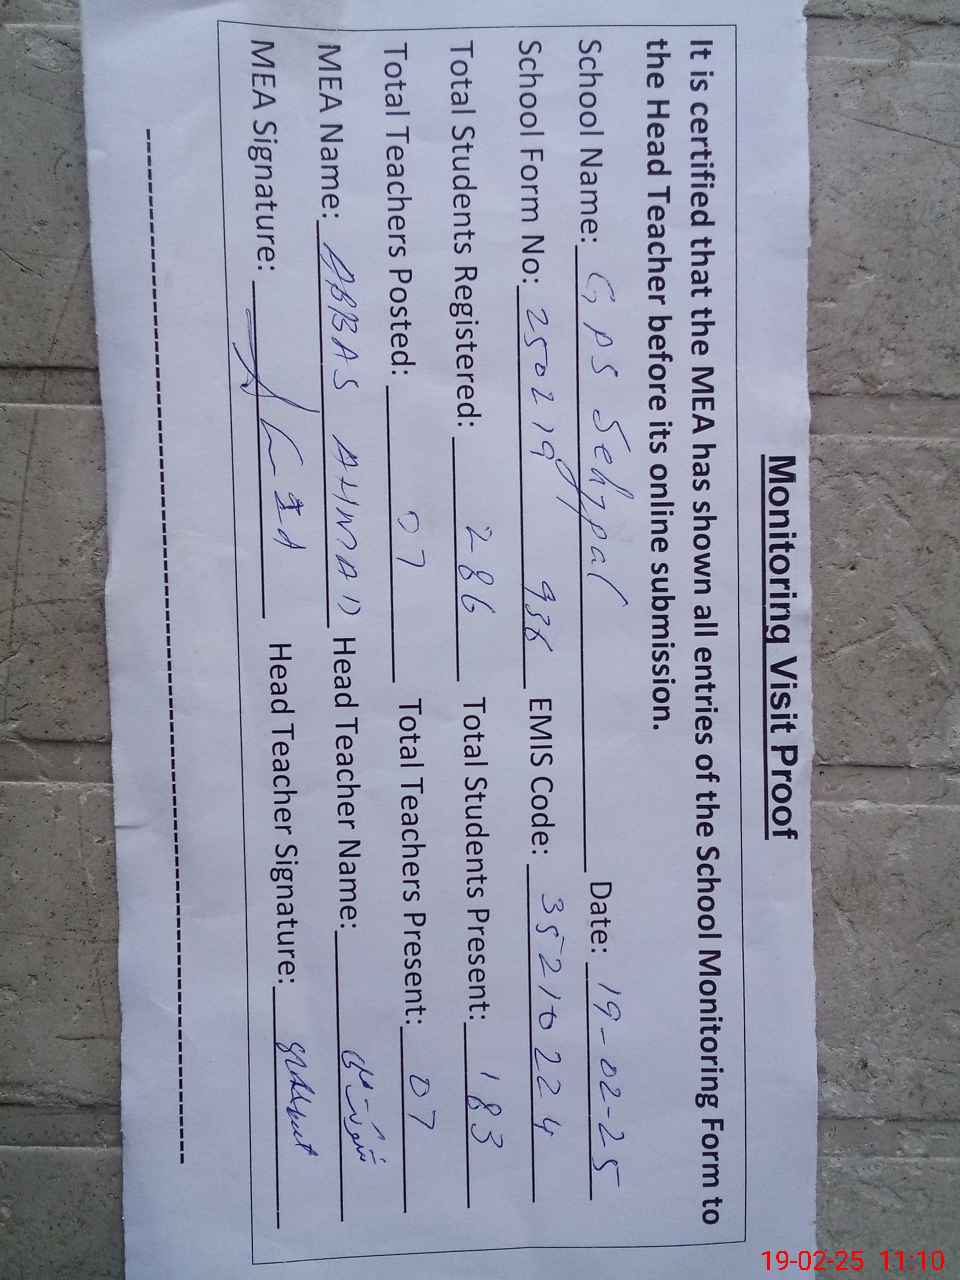 Monitoring Visit Proof
It is certified that the MEA has shown all entries of the School Monitoring Form to
the Head Teacher before its online submission.
School Name: GPS Sehjpal Date: 19-02-25
School Form No: 250219 938 EMIS Code: 35210224
Total Students Registered: 286 Total Students Present: 183
Total Teachers Posted: 07 Total Teachers Present: 07
MEA Name: ABBAS AHMAD Head Teacher Name:
MEA Signature: Head Teacher Signature:
19-02-25 11:10